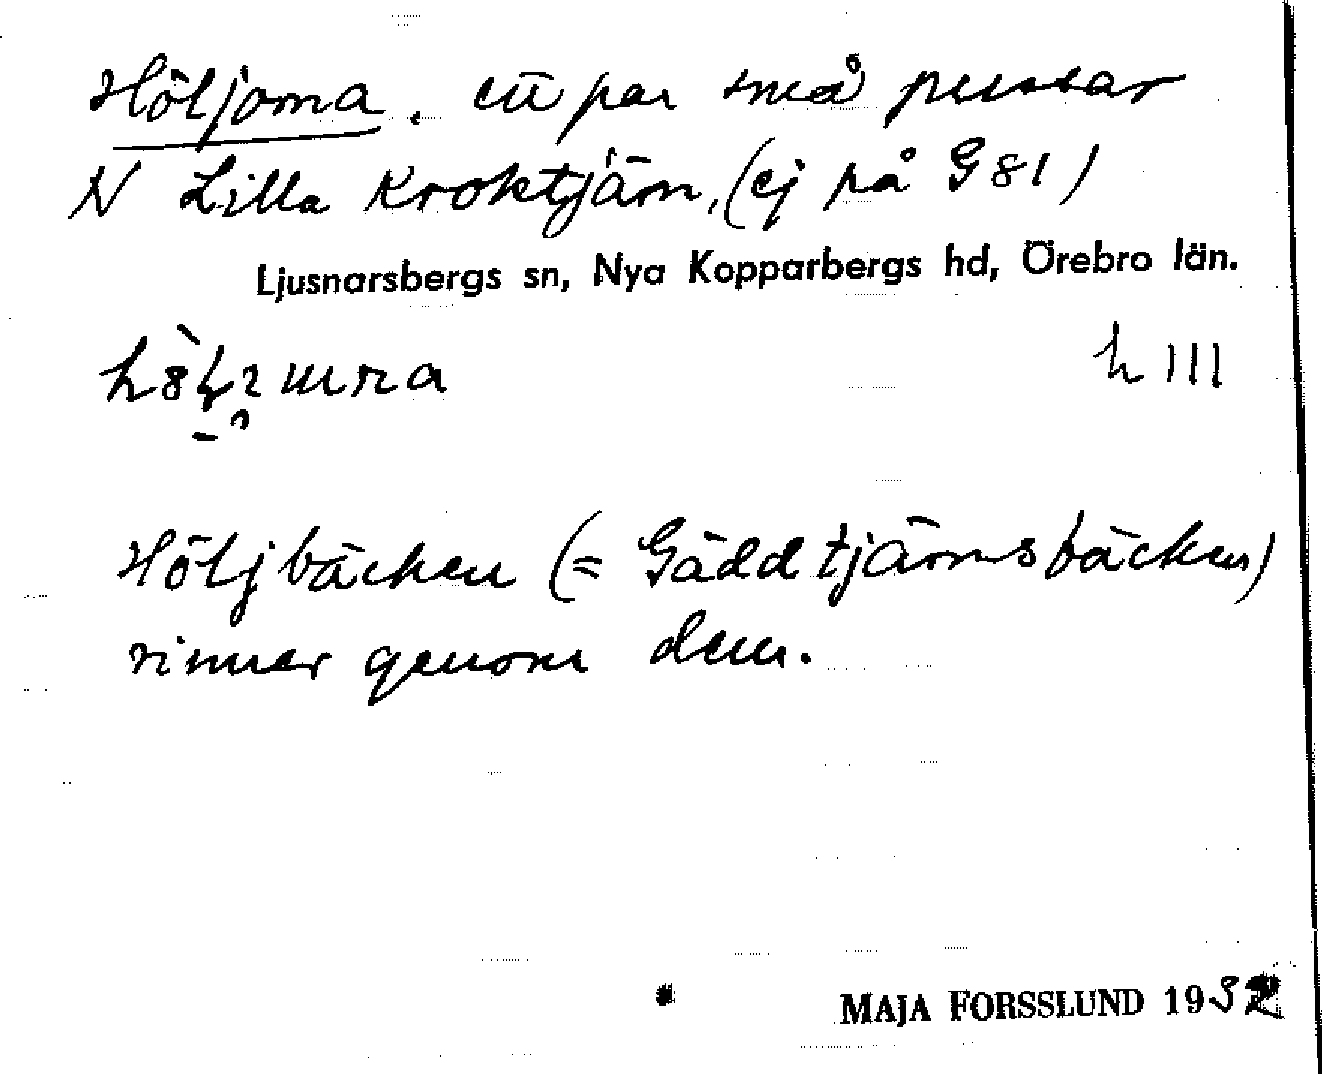 Höljorna, ett par små pussar
N Lilla Kroktjärn, (ej på G 81)
Ljusnarsbergs sn, Nya Kopparbergs hd, Örebro län.
h III
Höljbäcken (= Gäddtjärnsbäcken)
rinner genom dem.
MAJA FORSSLUND 1932